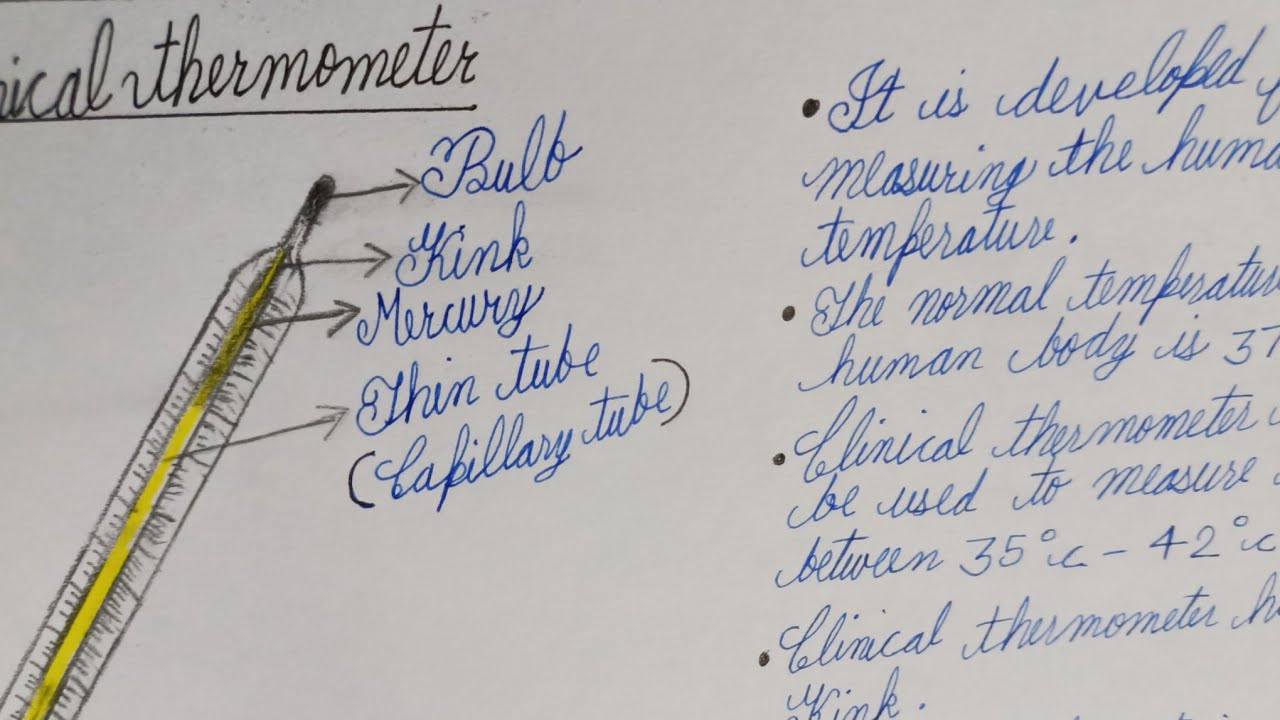 ical thermometer
Bulb
Kink
Mercury
Thin tube
(Capillary tube)
• It is developed
measuring the huma
temperature.
• The normal temperatur
human body is 37
• Clinical thermometer
be used to measure
between 35°c - 42°c
• Clinical thermometer h
Kink.